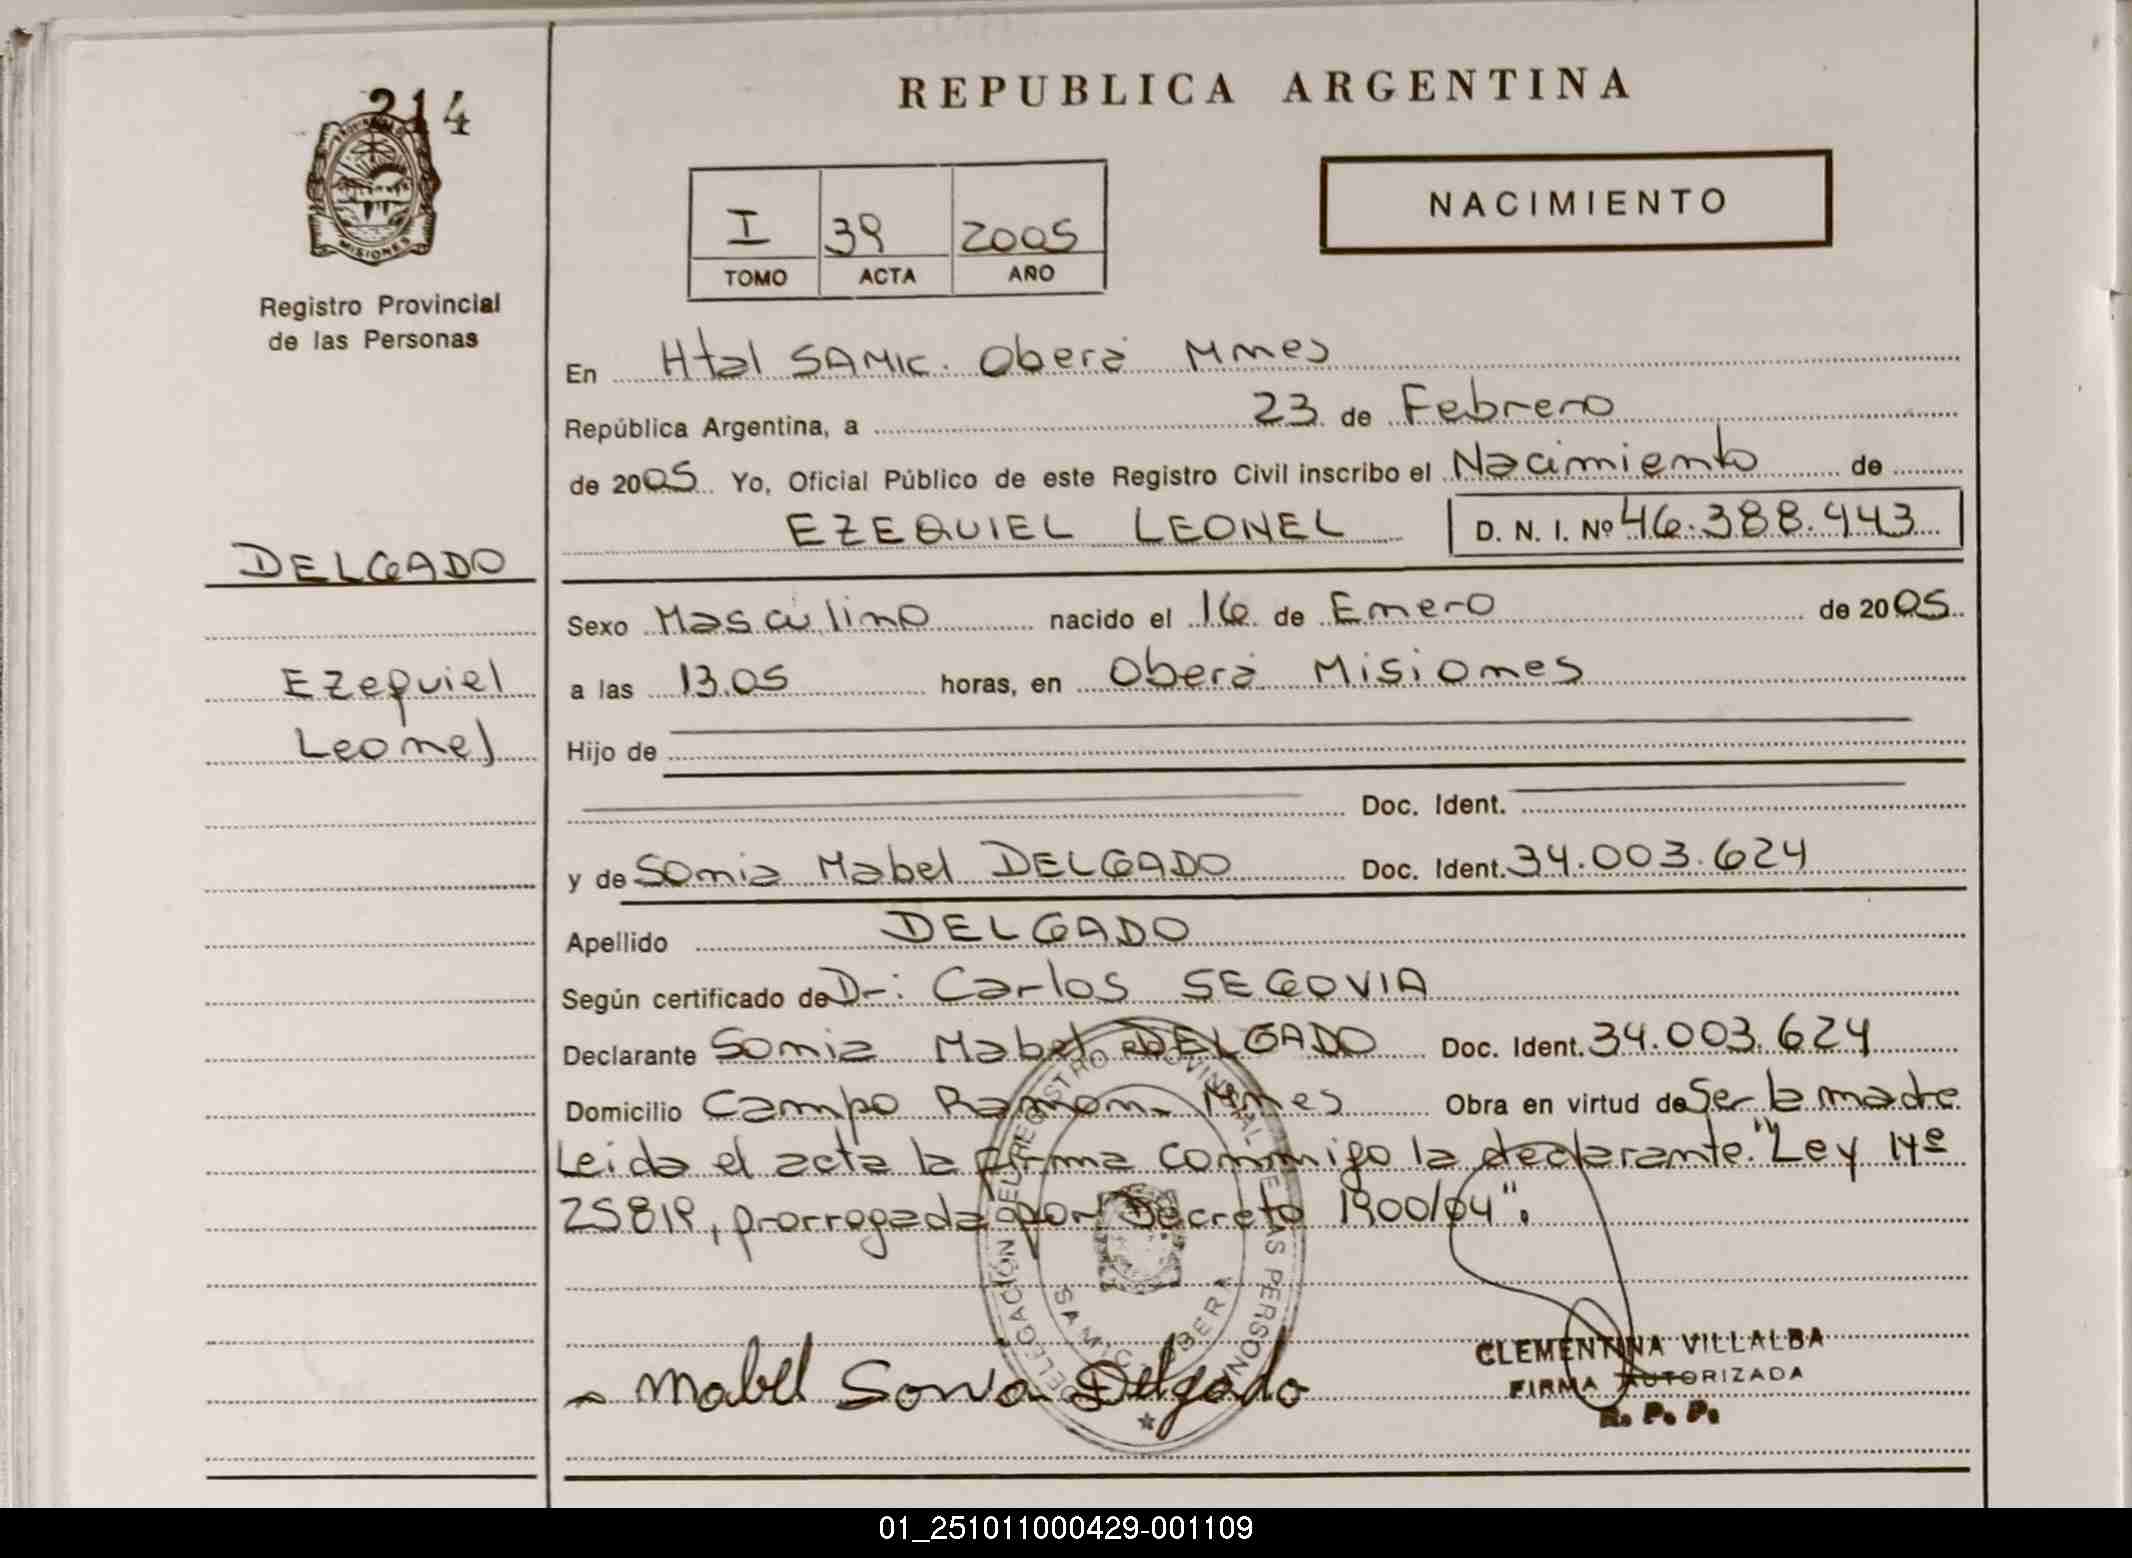 214
PROVINCIA DE
MISIONES
Registro Provincial
de las Personas
DELGADO
Ezequiel
Leonel
REPUBLICA ARGENTINA
I 39 2005
TOMO ACTA AÑO
NACIMIENTO
En Htal SAMIC. Oberá Mnes
República Argentina, a 23 de Febrero
de 2005 Yo, Oficial Público de este Registro Civil inscribo el Nacimiento de
EZEQUIEL LEONEL D. N. I. Nº 46.388.443
Sexo Masculino nacido el 16 de Enero de 2005
a las 13.05 horas, en Oberá Misiones
Hijo de
Doc. Ident.
y de Sonia Mabel DELGADO Doc. Ident. 34.003.624
Apellido DELGADO
Según certificado de Dr: Carlos SEGOVIA
Declarante Sonia Mabel DELGADO Doc. Ident. 34.003.624
Domicilio Campo Ramon Mnes Obra en virtud de Ser la madre
Leida el acta la firma conmigo la declarante. "Ley Nº
25819, prorrogada por Decreto 1900/04".
DELEGACIÓN DEL REGISTRO PROVINCIAL DE LAS PERSONAS
SAMIC. OBERA
Mabel Sonia Delgado
CLEMENTINA VILLALBA
FIRMA AUTORIZADA
R. P. P.
01_251011000429-001109